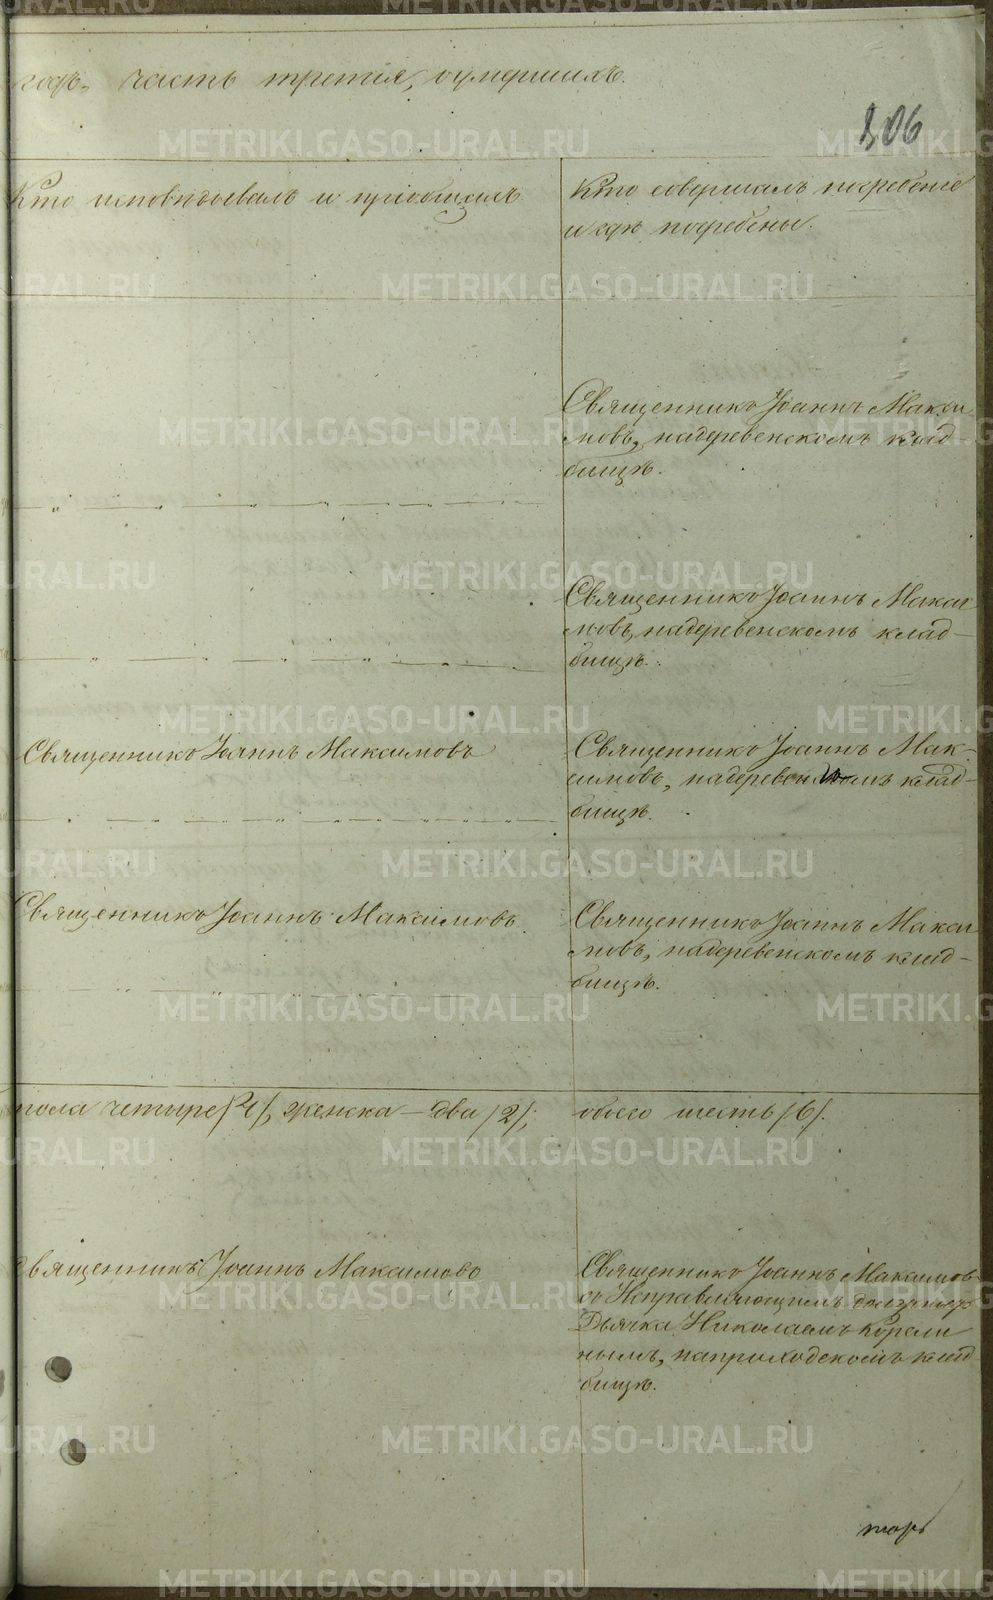 годъ, часть третія, умершихъ.
106
Кто исповѣдывалъ и пріобщалъ
Кто совершалъ погребеніе
и гдѣ погребены.
Священникъ Іоаннъ Макси
мовъ, на деревенскомъ клад-
бищѣ.
Священникъ Іоаннъ Макси
мовъ, на деревенскомъ клад-
бищѣ.
Священникъ Іоаннъ Максимовъ
Священникъ Іоаннъ Мак-
симовъ, на деревенскомъ клад-
бищѣ.
Священникъ Іоаннъ Максимовъ.
Священникъ Іоаннъ Макси
мовъ, на деревенскомъ клад-
бищѣ.
пола четыре /4/, женска - два /2/;
обоего шесть /6/.
Священникъ Іоаннъ Максимовъ
Священникъ Іоаннъ Максимов
съ Исправляющимъ должность
Дьячка Николаемъ Корели
нымъ, на приходскомъ клад
бищѣ.
METRIKI.GASO-URAL.RU